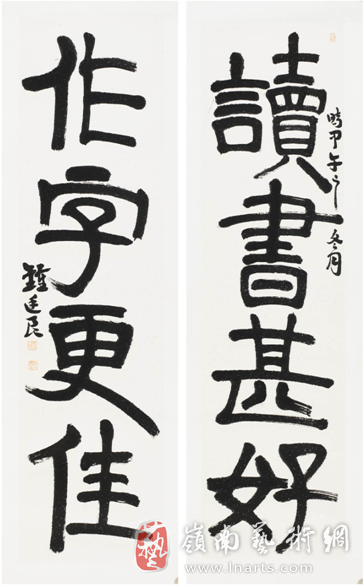 讀書甚好
時甲午之冬月
作字更佳
藝
嶺南藝術網
www.lnarts.com